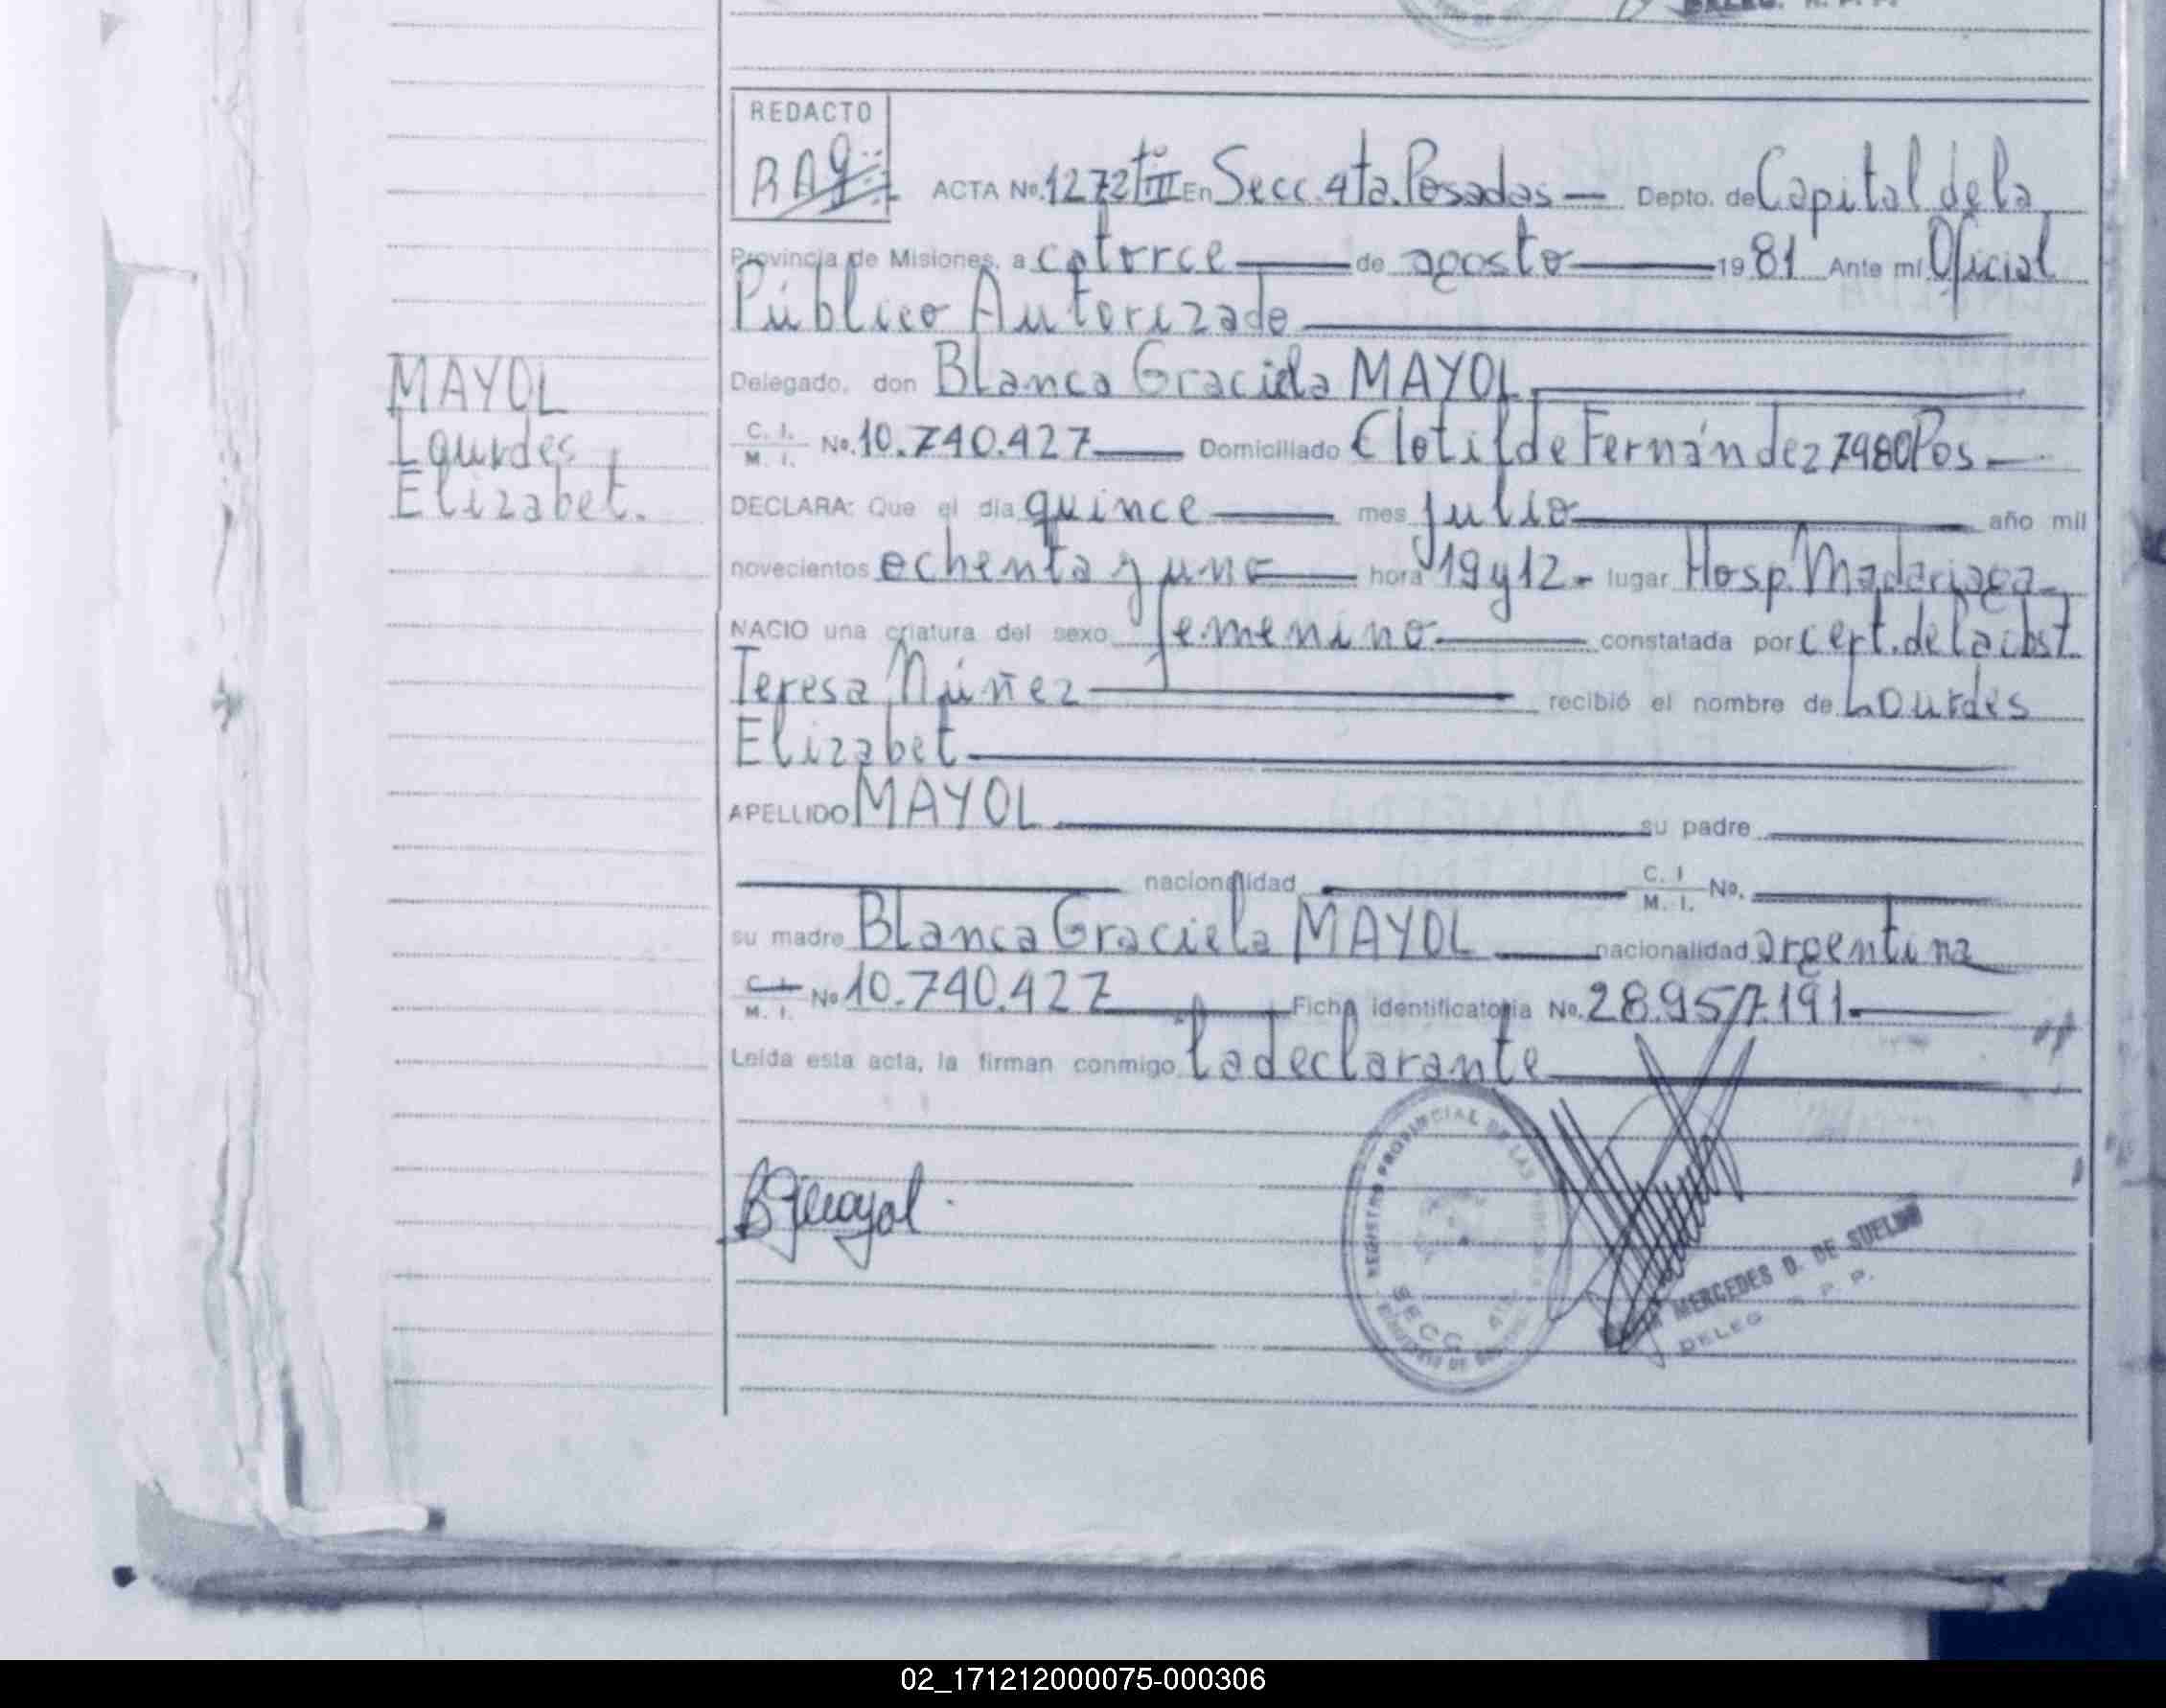 REDACTO
ACTA No. 1272 tº III En Secc. 4ta. Posadas — Depto. de Capital de la
Provincia de Misiones, a catorce — de agosto — 19 81 Ante mí Oficial
Público Autorizado
Delegado, don Blanca Graciela MAYOL
MAYOL
Lourdes
Elizabet.
C. I. M. I. No. 10.740.427 — Domiciliado Clotilde Fernández 7980 Pos —
DECLARA: Que el día quince — mes julio — año mil
novecientos ochenta y uno — hora 19 y 12 - lugar Hosp. Madariaga
NACIO una criatura del sexo femenino — constatada por cert. de la obst.
Teresa Núñez — recibió el nombre de Lourdes
Elizabet
APELLIDO MAYOL — su padre —
— nacionalidad — C. I M. I. No. —
su madre Blanca Graciela MAYOL — nacionalidad argentina
C. I. M. I. No 10.740.427 — Ficha identificatoria No. 28.957.191. —
Leída esta acta, la firman conmigo la declarante —
BGMayol.
REGISTRO PROVINCIAL DE LAS
SECC 4ta
MERCEDES D. DE SUELDO
DELEG. R. P. P.
02_171212000075-000306